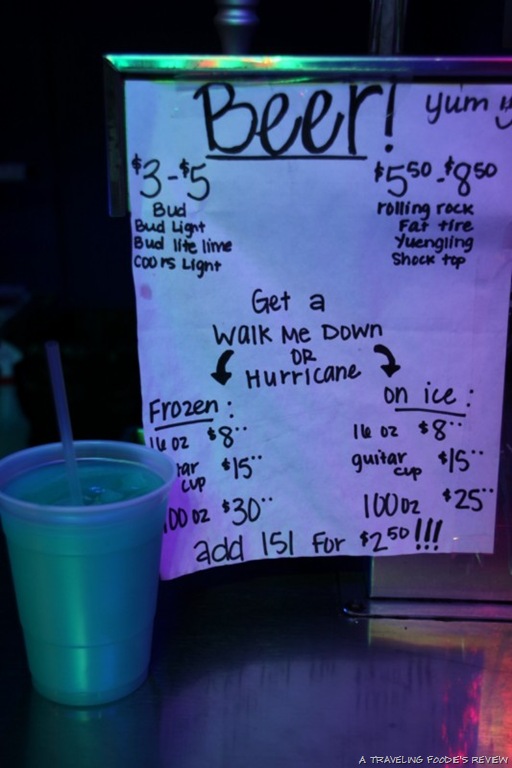 Beer! yum
$3-$5
Bud
Bud Light
Bud lite lime
Coors Light
$550-$850
rolling rock
Fat tire
Yuengling
Shock top
Get a
Walk Me Down
OR
Hurricane
Frozen:
16 oz $8
tar cup $15
100 oz $30
on ice:
16 oz $8
guitar cup $15
100 oz $25
add 151 for $2.50!!!
A TRAVELING FOODIE'S REVIEW